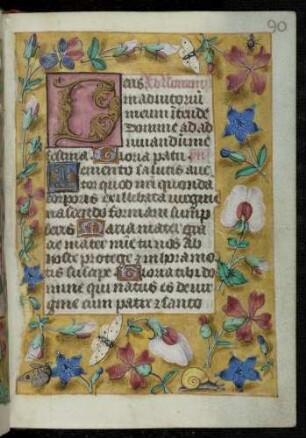 90
eus Ad complet
in adiutoriū
meum ītende
Domine ad ad
iuuandū me
festina Gloria patri
Memento salutis auc
tor quod nr̄i quondā
corporis ex illibata uirgine
nascendo formam sump
seris Maria mater gra
cie mater mīe tu nos ab
hoste protege ⁊ in hora mo
rtis suscipe Gloria tibi do
mine qui natus es de uir
gine cum patre ⁊ sancto